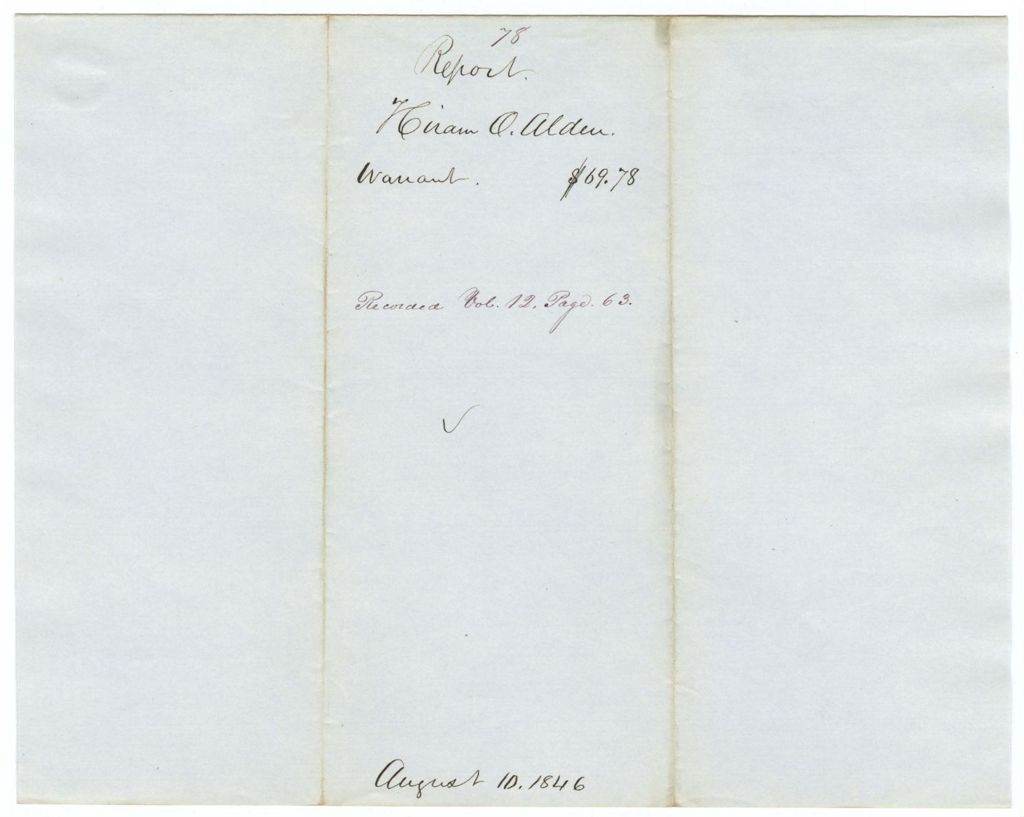 78
Report.
Hiram O. Alden.
Warrant. $69.78
Recorded Vol. 12. Page. 63.
August 10. 1846